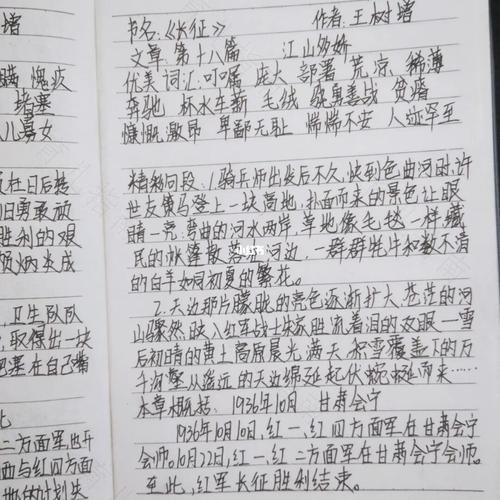 增
瞒 愧疚
堵塞
儿易女
旧勇敢顽
胜利的艰
卫生队队
取得出一块
塞在自己嘴
二方面军也开
西与红四方面
书名:《长征》 作者:王树增
文章:第十八篇 江山多娇
优美词汇:叮嘱 庞大 部署 荒凉 稀薄
奔驰 杯水车薪 毛绒 骁勇善战 贫瘠
慷慨激昂 卑鄙无耻 惴惴不安 人迹罕至
精彩句段:1骑兵师出发后不久,快到色曲河时,许
世友策马登上一块高地,扑面而来的景色让眼
睛一亮:弯曲的河水两岸,草地像毛毯一样,藏
民的帐篷散落在河边,一群群牦牛和数不清
的白羊如同初夏的繁花。
2.天边那片朦胧的亮色逐渐扩大,苍茫的河
山骤然映入红军战士块胀流着泪的双眼—雪
后初晴的黄土高原晨光满天,积雪覆盖下的万
千沟壑从遥远的天边绵延起伏蜿蜒而来……
本章概括:1936年10月 甘肃会宁
1936年10月10日,红一、红四方面军在甘肃会宁
会师。10月22日,红一、红二方面军在甘肃会宁会师。
至此,红军长征胜利结束。
小红书